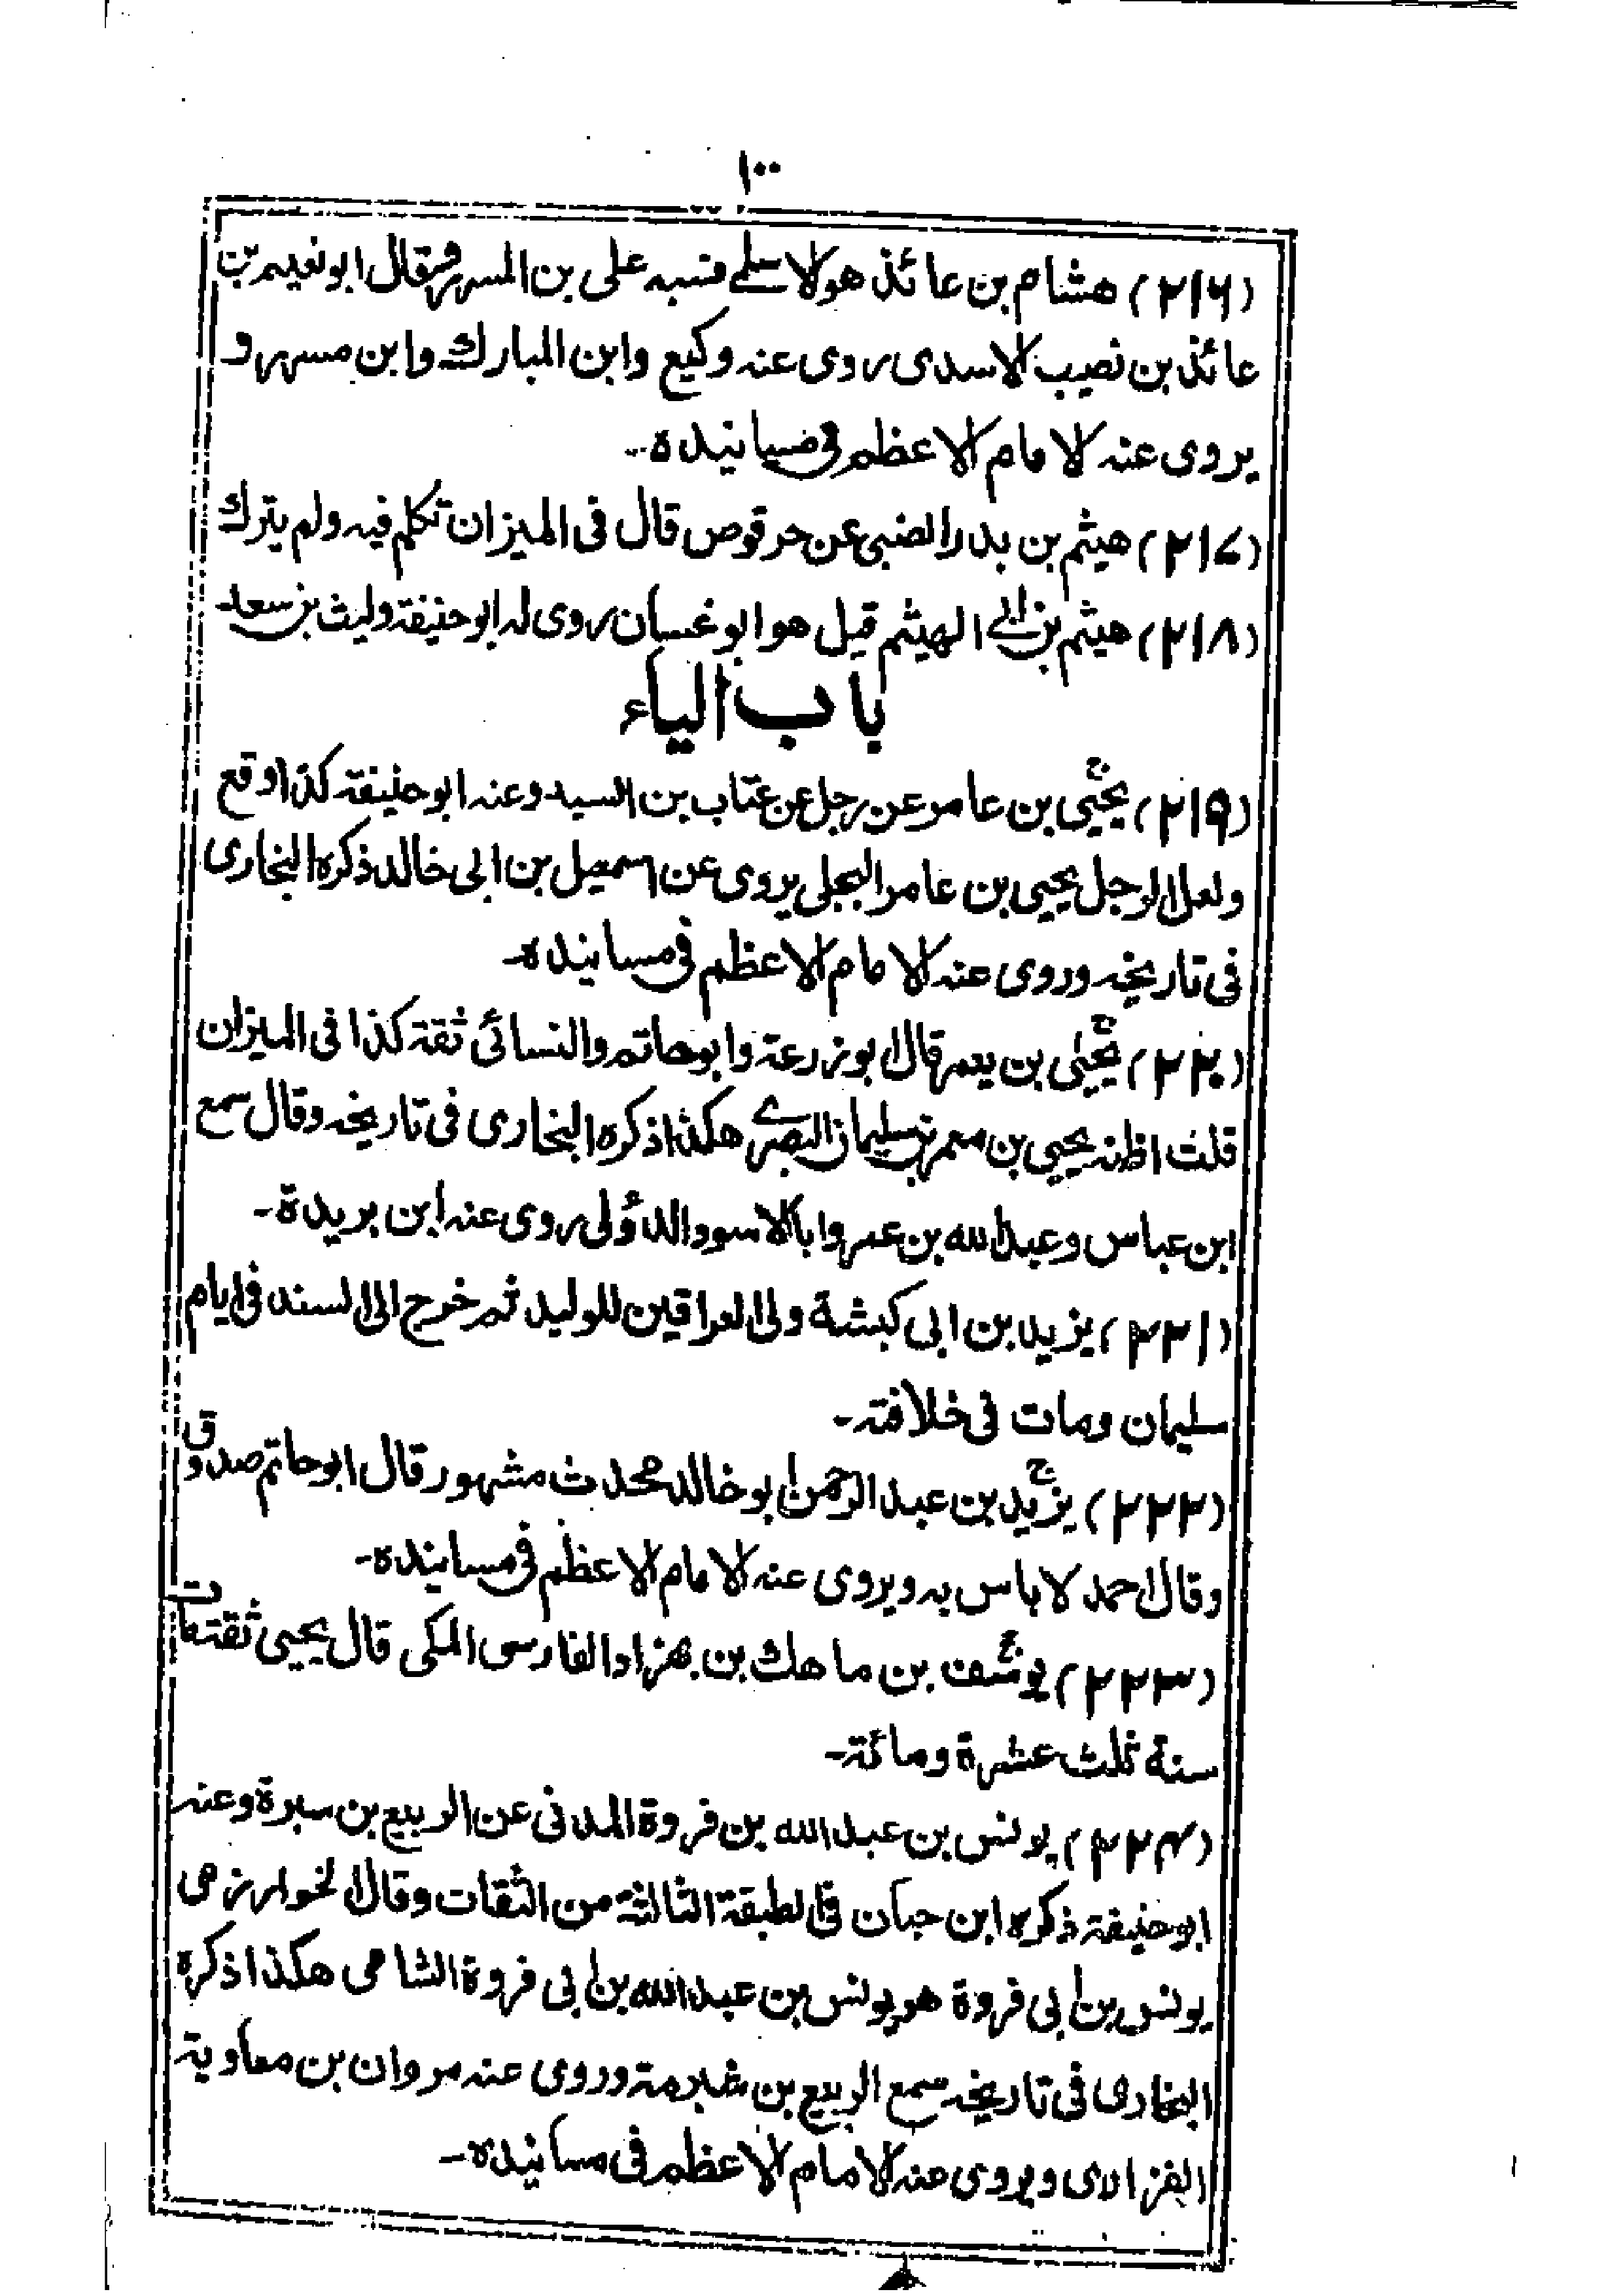 ١٠٠
(٢١٦) هشام بن عائذ هو الاسلمے نسبه علی بن المسهر وقال ابو نعیم بن
عائذ بن نصیب الاسدی روی عنه وکیع وابن المبارك وابن مسهر و
یروی عنه الامام الاعظم فی مسانیده۔
(٢١٧) هیثم بن بدر الضبی عن حرقوص قال فی المیزان تکلم فیه ولم یترك
(٢١٨) هیثم بن ابی الهیثم قیل هو ابو غسان روی له ابو حنیفة ولیث بن سعد
باب الیاء
(٢١٩) یحیی بن عامر عن رجل عن عتاب بن السید وعنه ابو حنیفة کذا وقع
ولعل الرجل یحیی بن عامر البجلی یروی عن اسمعیل بن ابی خالد ذکره البخاری
فی تاریخه وروی عنه الامام الاعظم فی مسانیده۔
(٢٢٠) یحیی بن یعمر قال ابو زرعة وابو حاتم والنسائی ثقة کذا فی المیزان
قلت اظنه یحیی بن معمر بن سلیمان البصرے هکذا ذکره البخاری فی تاریخه وقال سمع
ابن عباس وعبد الله بن عمر وابا الاسود الدؤلی روی عنه ابن بریدة۔
(٢٢١) یزید بن ابی کبشة ولی العراقین للولید ثم خرج الی السند فی ایام
سلیمان ومات فی خلافته۔
(٢٢٢) یزید بن عبد الرحمن ابو خالد محدث مشهور قال ابو حاتم صدوق
وقال احمد لا باس به ویروی عنه الامام الاعظم فی مسانیده۔
(٢٢٣) یوسف بن ماهك بن بهزاد الفارسی المکی قال یحیی ثقة مات
سنة ثلث عشرة ومائة۔
(٢٢٤) یونس بن عبد الله بن فروة المدنی عن الربیع بن سبرة وعنه
ابو حنیفة ذکره ابن حبان فی الطبقة الثالثة من الثقات وقال الخوارزمی
یونس بن ابی فروة هو یونس بن عبد الله بن ابی فروة الشامی هکذا ذکره
البخاری فی تاریخه سمع الربیع بن شبرمة وروی عنه مروان بن معاویة
الفزاری ویروی عنه الامام الاعظم فی مسانیده۔